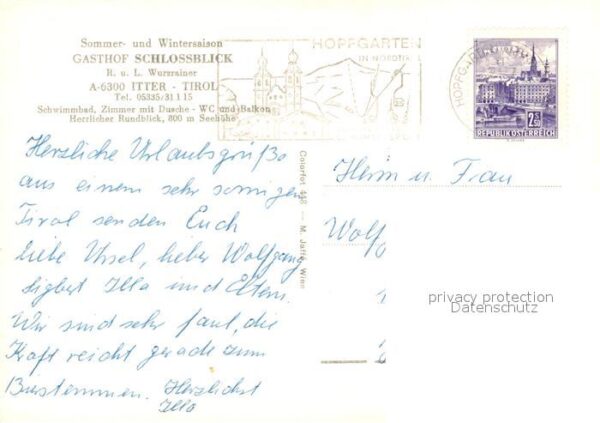 Sommer- und Wintersaison
GASTHOF SCHLOSSBLICK
R. u. L. Wurzrainer
A-6300 ITTER - TIROL
Tel. 05335/31 1 15
Schwimmbad, Zimmer mit Dusche - WC und Balkon
Herrlicher Rundblick, 800 m Seehöhe
HOPFGARTEN
IN NORDTIROL
HOPFGARTEN
2.50
REPUBLIK ÖSTERREICH
Herzliche Urlaubsgrüße
aus einem sehr sonnigen
Tirol senden Euch
liebe Ursel, lieber Wolfgang
Sigbert Illa und Eltern.
Wir sind sehr faul, die
Kraft reicht gerade zum
Herzlichst
Illa
Colorfot — M. Jaffé, Wien
Herrn u. Frau
Wolf
privacy protection
Datenschutz